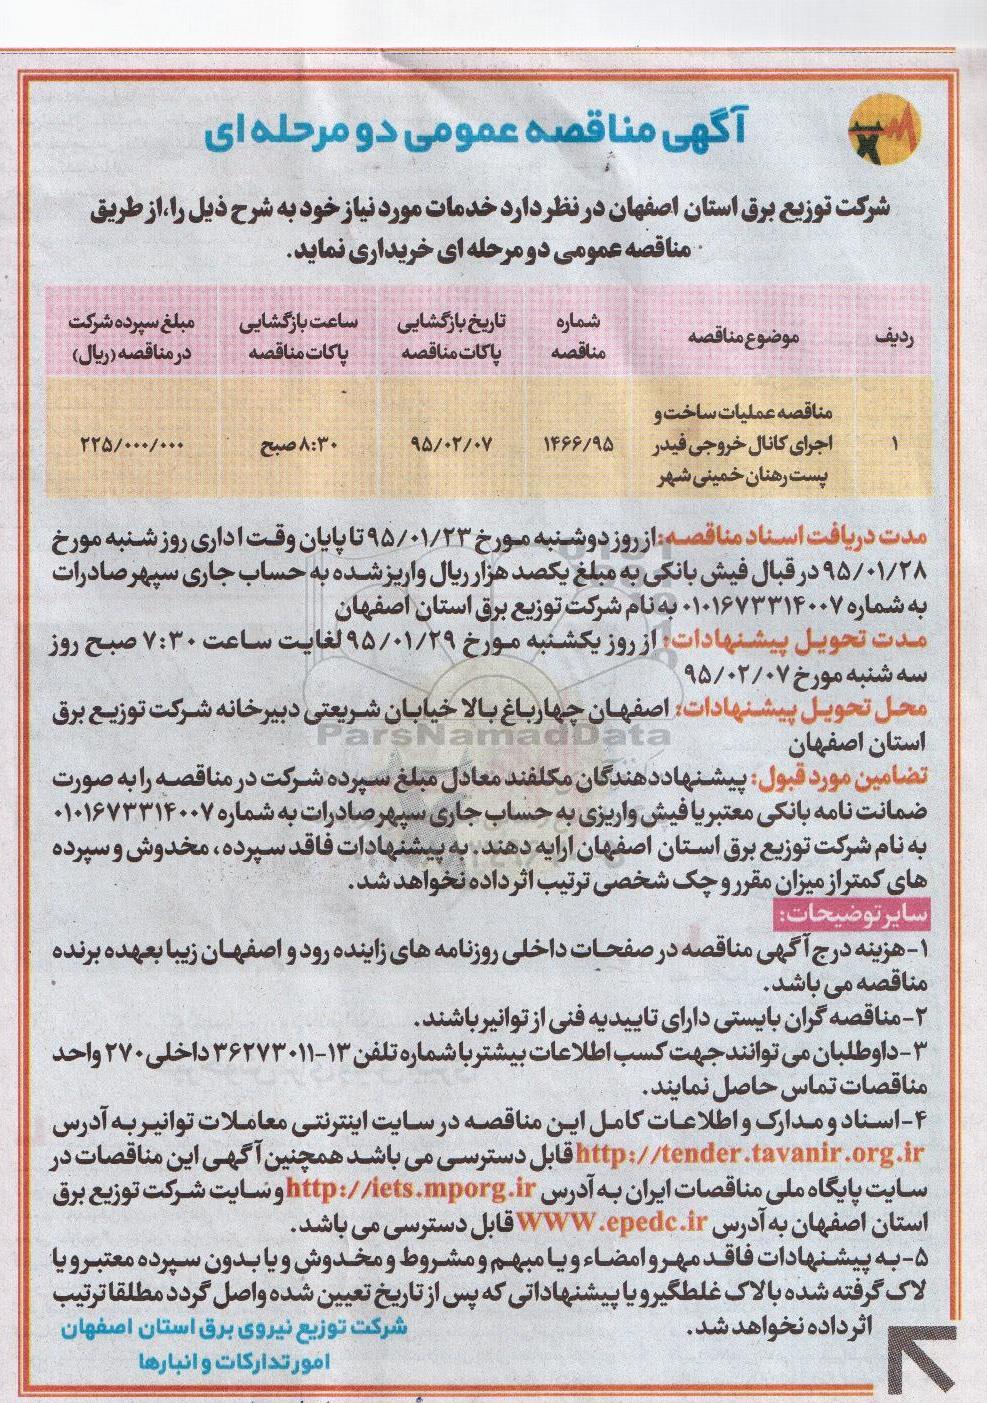 آگهی مناقصه عمومی دو مرحله ای
شرکت توزیع برق استان اصفهان در نظر دارد خدمات مورد نیاز خود به شرح ذیل را، از طریق
مناقصه عمومی دو مرحله ای خریداری نماید.
ردیف
موضوع مناقصه
شماره
مناقصه
تاریخ بازگشایی
پاکات مناقصه
ساعت بازگشایی
پاکات مناقصه
مبلغ سپرده شرکت
در مناقصه (ریال)
۱
مناقصه عملیات ساخت و
اجرای کانال خروجی فیدر
پست رهنان خمینی شهر
۱۴۶۶/۹۵
۹۵/۰۲/۰۷
۸:۳۰ صبح
۲۲۵/۰۰۰/۰۰۰
مدت دریافت اسناد مناقصه: از روز دوشنبه مورخ ۹۵/۰۱/۲۳ تا پایان وقت اداری روز شنبه مورخ
۹۵/۰۱/۲۸ در قبال فیش بانکی به مبلغ یکصد هزار ریال واریز شده به حساب جاری سپهر صادرات
به شماره ۰۱۰۱۶۷۳۳۱۴۰۰۷ به نام شرکت توزیع برق استان اصفهان
مدت تحویل پیشنهادات: از روز یکشنبه مورخ ۹۵/۰۱/۲۹ لغایت ساعت ۷:۳۰ صبح روز
سه شنبه مورخ ۹۵/۰۲/۰۷
محل تحویل پیشنهادات: اصفهان چهارباغ بالا خیابان شریعتی دبیرخانه شرکت توزیع برق
استان اصفهان
ParsNamadData
تضامین مورد قبول: پیشنهاددهندگان مکلفند معادل مبلغ سپرده شرکت در مناقصه را به صورت
ضمانت نامه بانکی معتبر یا فیش واریزی به حساب جاری سپهر صادرات به شماره ۰۱۰۱۶۷۳۳۱۴۰۰۷
به نام شرکت توزیع برق استان اصفهان ارایه دهند. به پیشنهادات فاقد سپرده، مخدوش و سپرده
های کمتر از میزان مقرر و چک شخصی ترتیب اثر داده نخواهد شد.
سایر توضیحات:
۱-هزینه درج آگهی مناقصه در صفحات داخلی روزنامه های زاینده رود و اصفهان زیبا بعهده برنده
مناقصه می باشد.
۲-مناقصه گران بایستی دارای تاییدیه فنی از توانیر باشند.
۳-داوطلبان می توانند جهت کسب اطلاعات بیشتر با شماره تلفن ۱۳-۳۶۲۷۳۰۱۱ داخلی ۲۷۰ واحد
مناقصات تماس حاصل نمایند.
۴-اسناد و مدارک و اطلاعات کامل این مناقصه در سایت اینترنتی معاملات توانیر به آدرس
http://tender.tavanir.org.ir قابل دسترسی می باشد همچنین آگهی این مناقصات در
سایت پایگاه ملی مناقصات ایران به آدرس http://iets.mporg.ir و سایت شرکت توزیع برق
استان اصفهان به آدرس WWW.epedc.ir قابل دسترسی می باشد.
۵-به پیشنهادات فاقد مهر و امضاء و یا مبهم و مشروط و مخدوش و یا بدون سپرده معتبر و یا
لاک گرفته شده با لاک غلطگیر و یا پیشنهاداتی که پس از تاریخ تعیین شده واصل گردد مطلقا ترتیب
اثر داده نخواهد شد.
شرکت توزیع نیروی برق استان اصفهان
امور تدارکات و انبارها